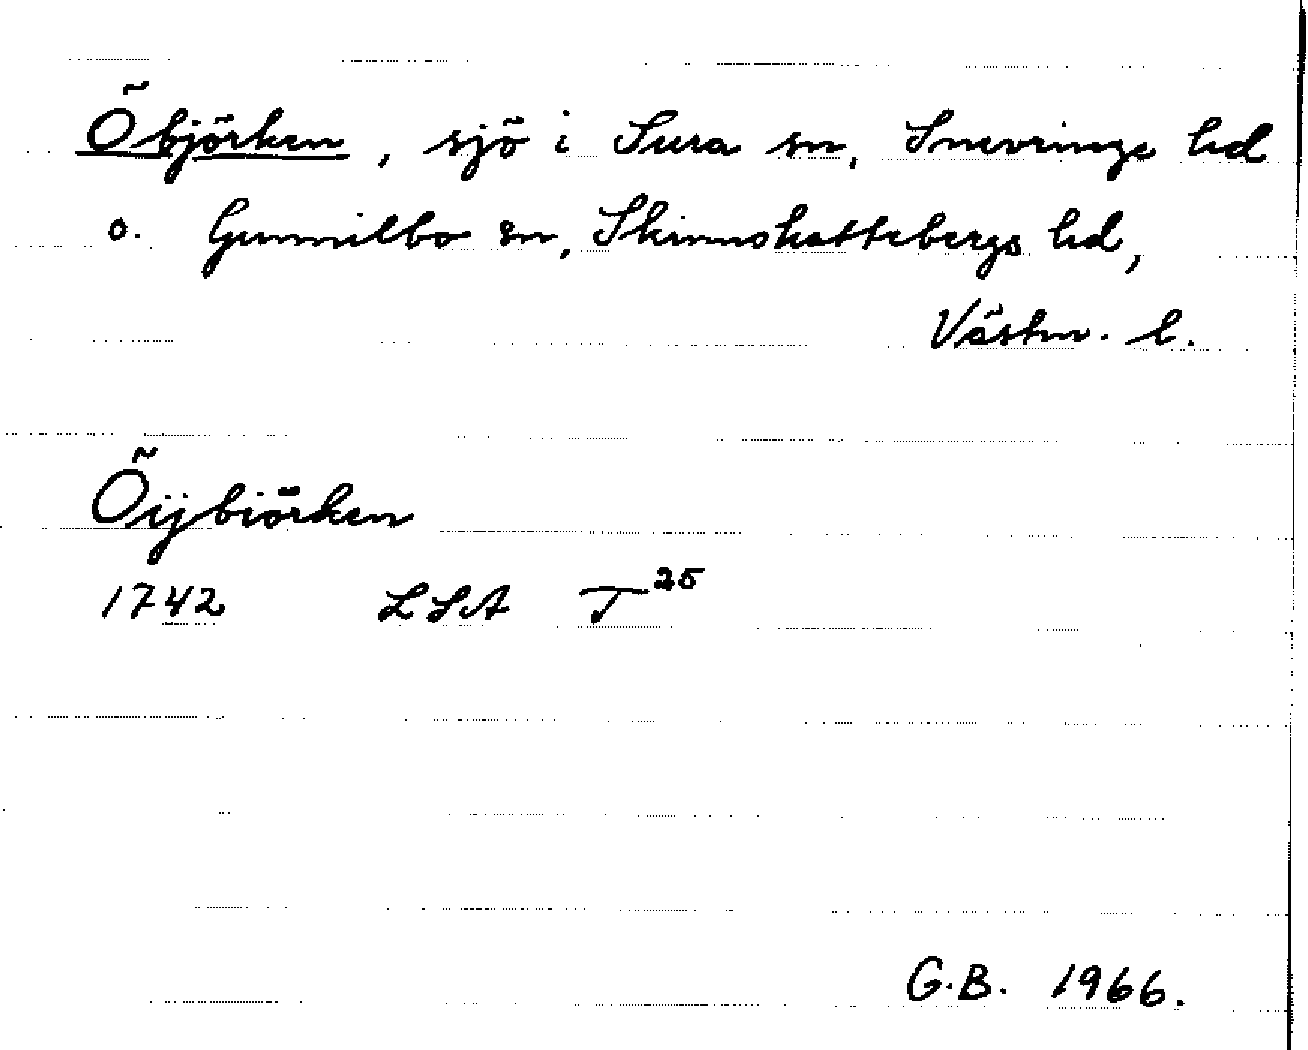 Öbjörken, sjö i Sura sn, Snevringe hd
o. Gunnilbo sn, Skinnskattebergs hd,
Västm. l.
Öijbiörken
1742 LSA T25
G.B. 1966.